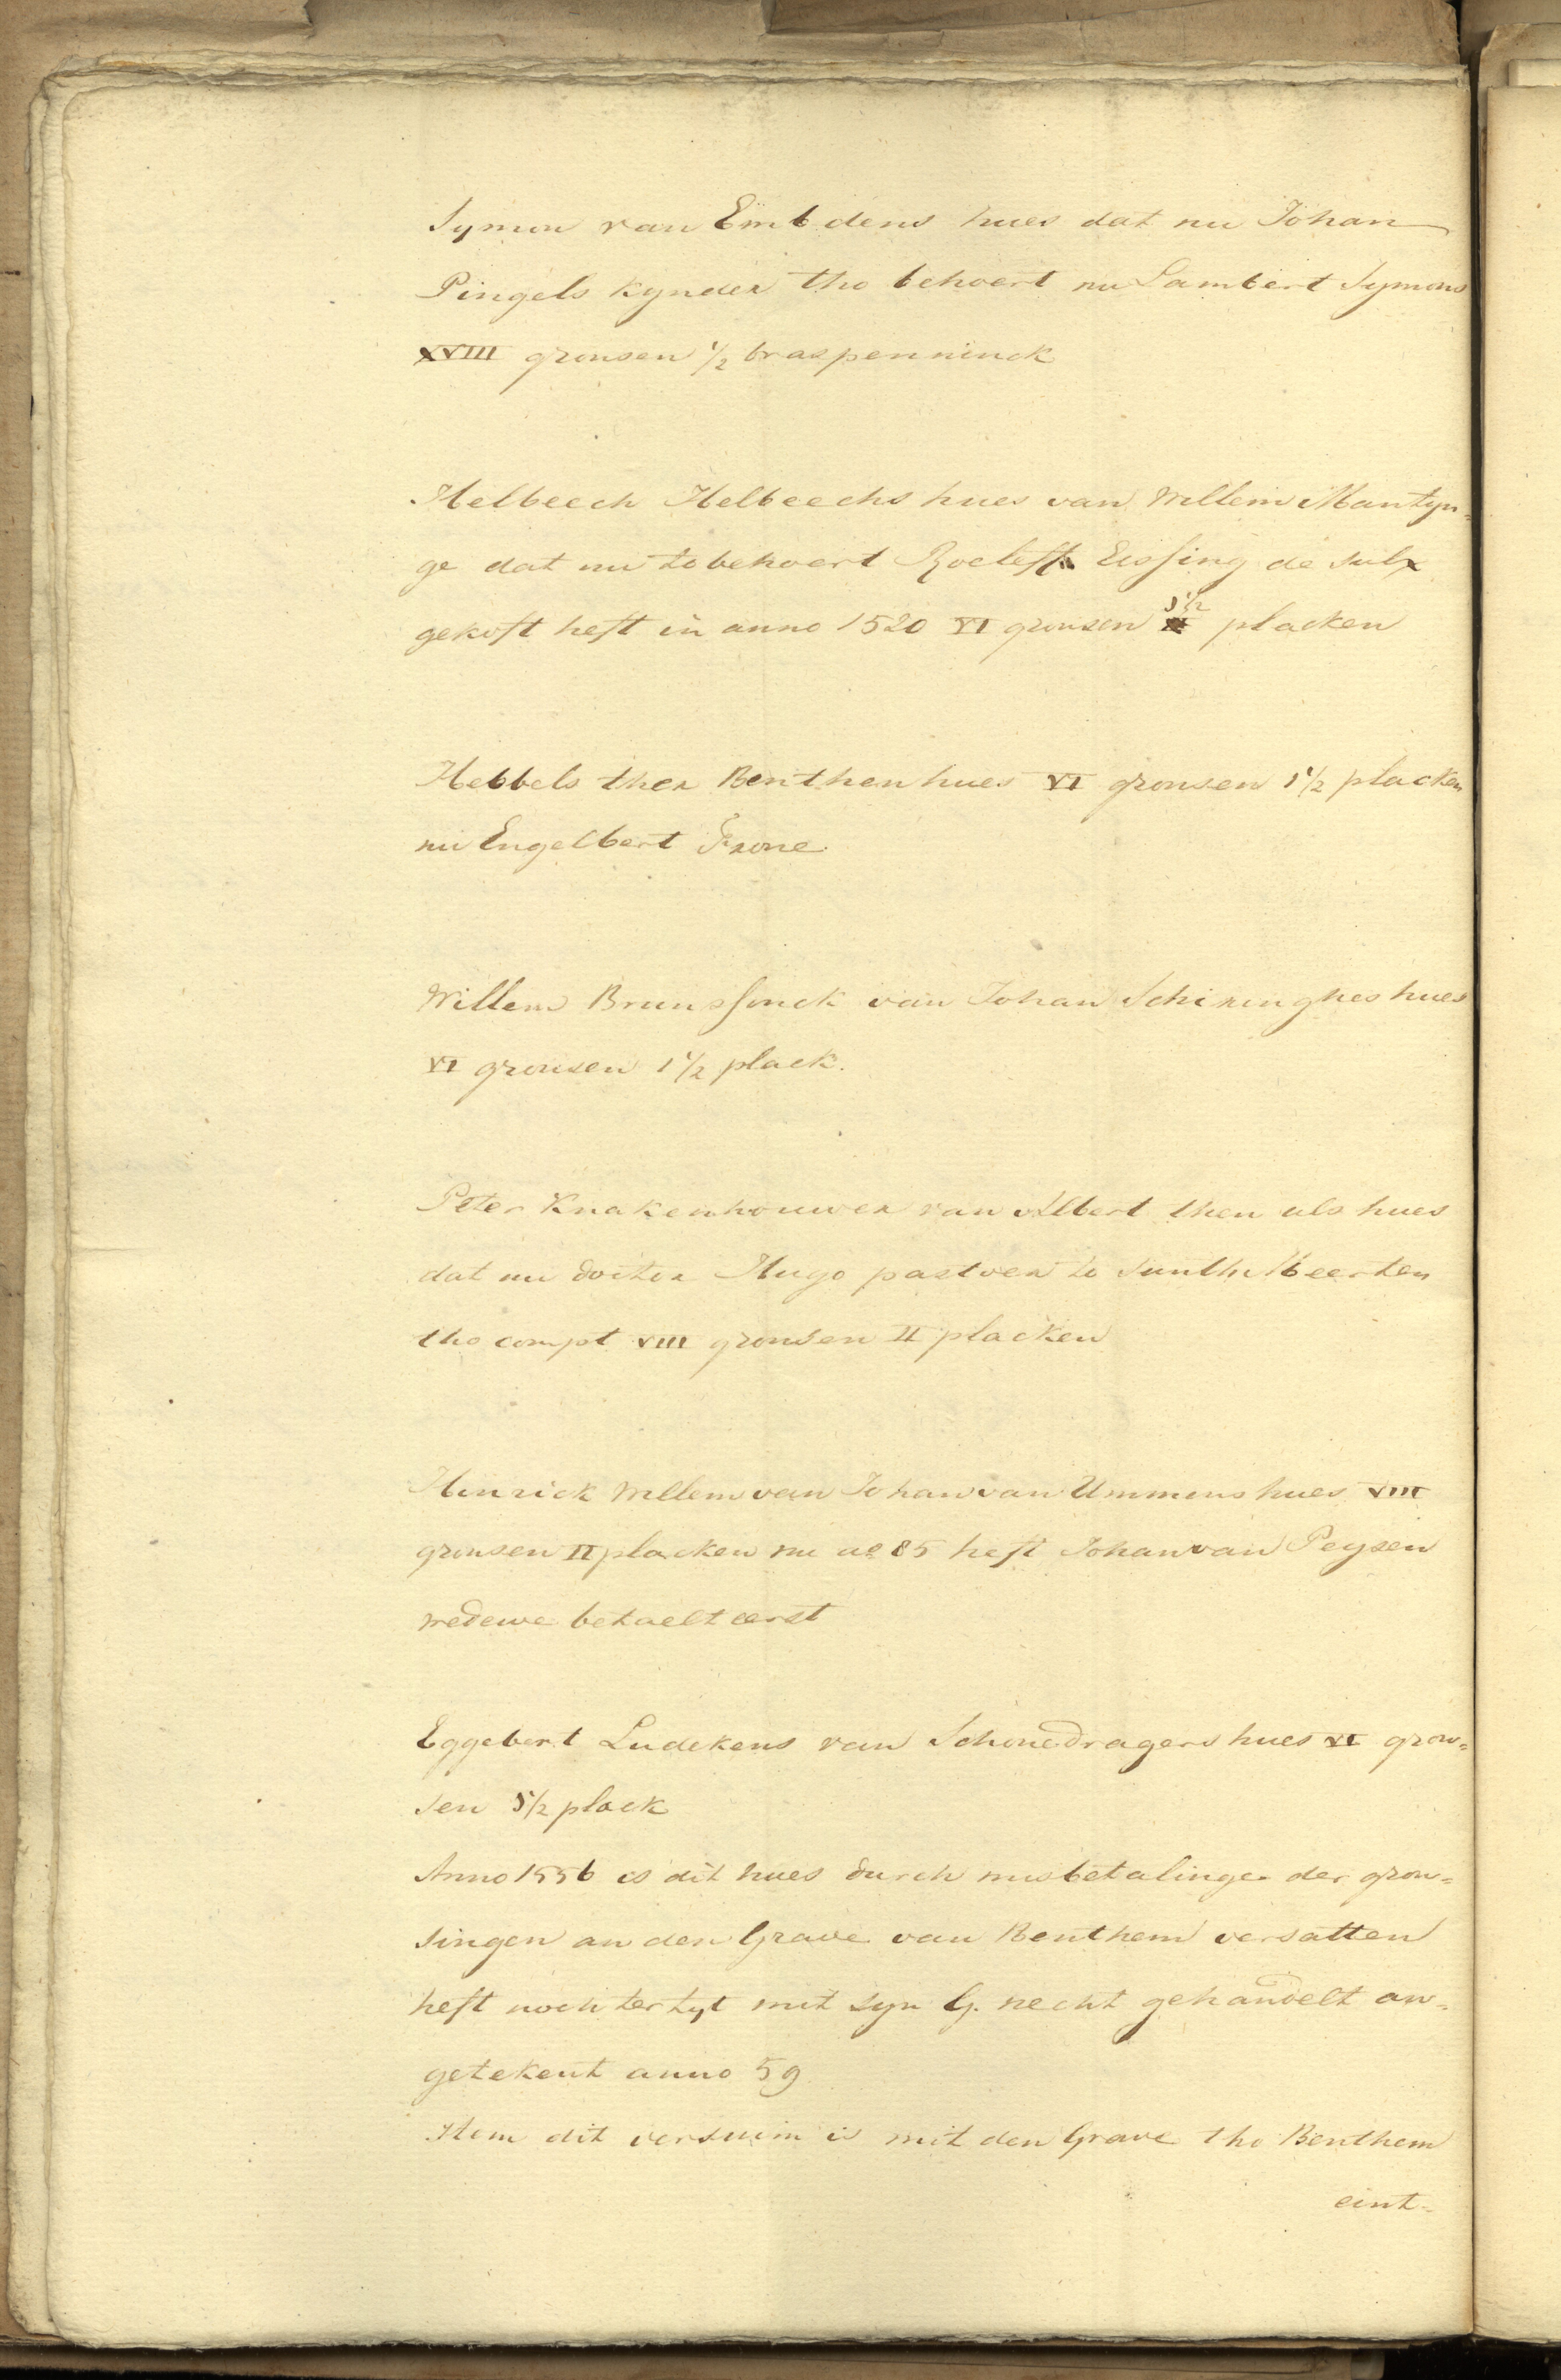 Symon van Embdens hues dat nu Johan
Pingels kynder tho behoert nu Lambert Symons
XVIII gronsen 1/2 braspenninck
Helbeech Helbeechs hues van Willem Mantyn=
ge dat nu tobehoert Roeleff Eissing de sulx
gekoft heft in anno 1520 VI gronsen 1 1/2 placken
Hebbels ther Benthen hues VI gronsen 1 1/2 placken
nu Engelbert Frone.
Willem Brunssinck van Johan Schiringhes hues
VI gronsen 1 1/2 plack.
Peter Knakenhouwer van Albert then als hues
dat nu doctor Hugo pastoer to Sunthe Meerten
tho compt VIII gronsen II placken
Hinrick Willem van Johan van Ummens hues VIII
gronsen II placken nu ao 85 heft Johan van Peysen
wedewe betaelt eerst
Eggebert Ludekens van Schonedragers hues VI gron=
sen 1 1/2 plack
Anno 1556 is dit hues durch misbetalinge der gron=
singen an den Grave van Benthem versatten
heft noch ter tyt mit syn G. necht gehandelt an=
getekent anno 59
Item dit versuim is mit den Grave tho Benthem
eint=